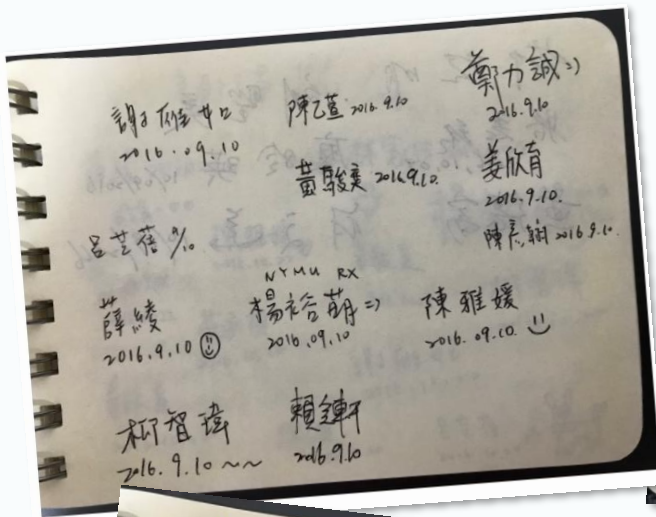 謝雅如
2016.09.10
陳乙萱 2016.9.10
鄭力誠 :)
2016.9.10
黃駿奕 2016.9.10.
姜欣育
2016.9.10.
呂芷蓓 9/10
陳 2016.9.10.
薛綾
2016.9.10
NYMU RX
楊裕萌 :)
2016.09.10
陳雅媛
2016.09.10.
柳智瑋
2016.9.10~~
賴軒
2016.9.10